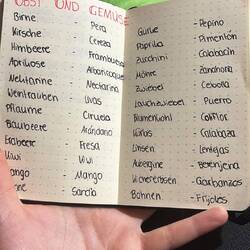 OBST UND GEMÜSE
Birne - Pera
Kirsche - Cereza
Himbeere - Frambuesa
Aprikose - Albaricoque
Nektarine - Nectarina
Weintrauben - Uvas
Pflaume - Ciruela
Blaubeere - Arándano
Erdbeere - Fresa
Kiwi - Kiwi
Mango - Mango
- Sandía
Gurke - Pepino
Paprika - Pimentón
Zucchini - Calabacín
Möhre - Zanahoria
Zwiebel - Cebolla
Lauchzwiebel - Puerro
Blumenkohl - Coliflor
Kürbis - Calabaza
Linsen - Lentejas
Aubergine - Berenjena
Kichererbsen - Garbanzos
Bohnen - Frijoles